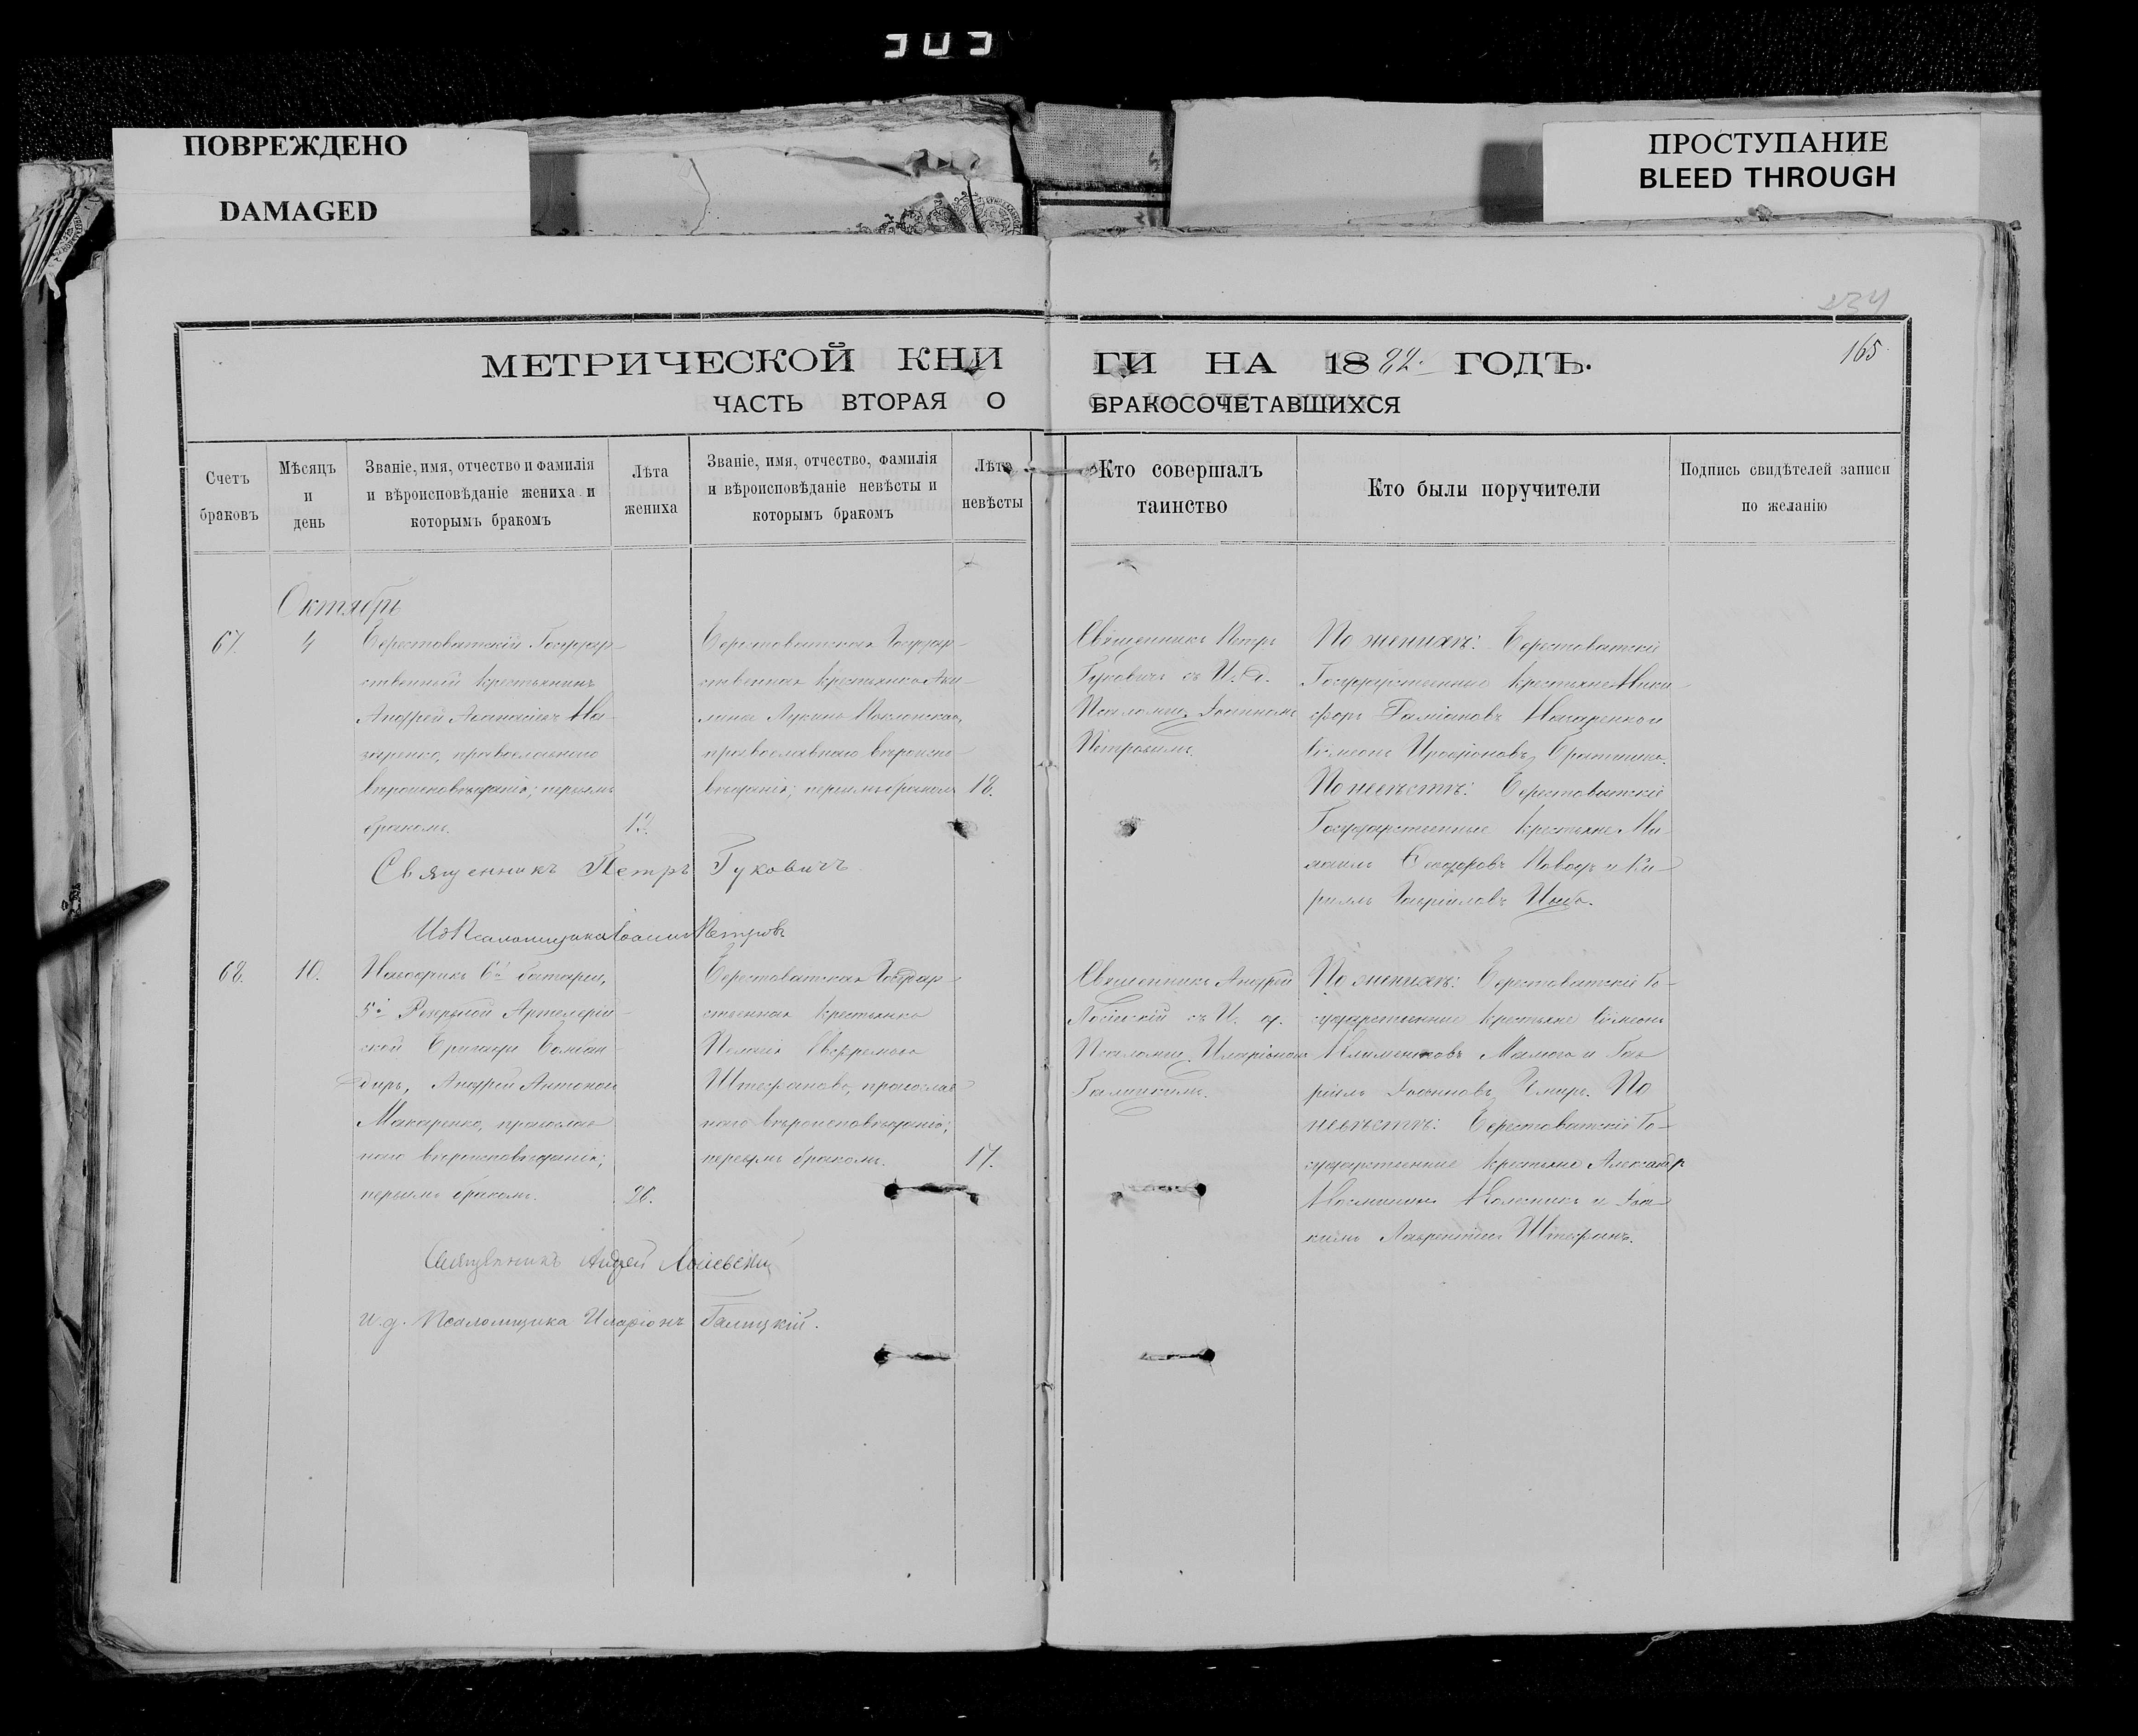 ПОВРЕЖДЕНО
DAMAGED
ПРОСТУПАНИЕ
BLEED THROUGH
234
165
МЕТРИЧЕСКОЙ КНИГИ НА 1882 ГОДЪ.
ЧАСТЬ ВТОРАЯ О БРАКОСОЧЕТАВШИХСЯ
Счетъ
браковъ
Мѣсяцъ
и
день
Званіе, имя, отчество и фамилія
и вѣроисповѣданіе жениха и
которымъ бракомъ
Лѣта
жениха
Званіе, имя, отчество, фамилія
и вѣроисповѣданіе невѣсты и
которымъ бракомъ
Лѣта
невѣсты
Кто совершалъ
таинство
Кто были поручители
Подпись свидѣтелей записи
по желанію
Октябрь
67.
4
Берестоватскій Государ-
ственный крестьянинъ
Андрей Аѳанасіевъ На-
заренко, православнаго
вѣроисповѣданія; первымъ
бракомъ.
Берестоватская Государ-
ственная крестьянка Аки-
лина Лукина
православнаго вѣроиспо-
вѣданія; первымъ бракомъ
18.
Священникъ Петръ
Гуковичъ съ И. Д.
Псаломщ. Іоанномъ
Петровымъ.
По женихѣ: Берестоватскіе
Государственные крестьяне Ники-
форъ Даміановъ Назаренко и
Симеонъ
По невѣстѣ: Берестоватскіе
Государственные крестьяне Ми-
хаилъ Ѳеодоровъ и Ки-
риллъ Гавріиловъ
Священникъ Петръ Гуковичъ
ИД Псаломщика Іоаннъ Петровъ
68.
10.
6й батареи,
5й Резервной Артелерій-
ской Бригады Бомбан-
диръ, Андрей Антоновъ
Макаренко, православ-
наго вѣроисповѣданія;
первымъ бракомъ.
26.
Берестоватская Государ-
ственная крестьянка
Пелагія Евфремова
Штефанова, православ-
наго вѣроисповѣданія;
первымъ бракомъ.
17.
Священникъ Андрей
Лосіевскій съ И. д.
Псаломщ. Иларіономъ
Галицкимъ.
По женихѣ: Берестоватскіе Го-
сударственные крестьяне Симеонъ
Климентовъ и Гав-
ріилъ Іоанновъ По
невѣстѣ: Берестоватскіе Го-
сударственные крестьяне Александръ
и Іоа-
кимъ Лаврентіевъ Штефанъ.
Священникъ Андрей Лосіевскій
и. д. Псаломщика Иларіонъ Галицкій.